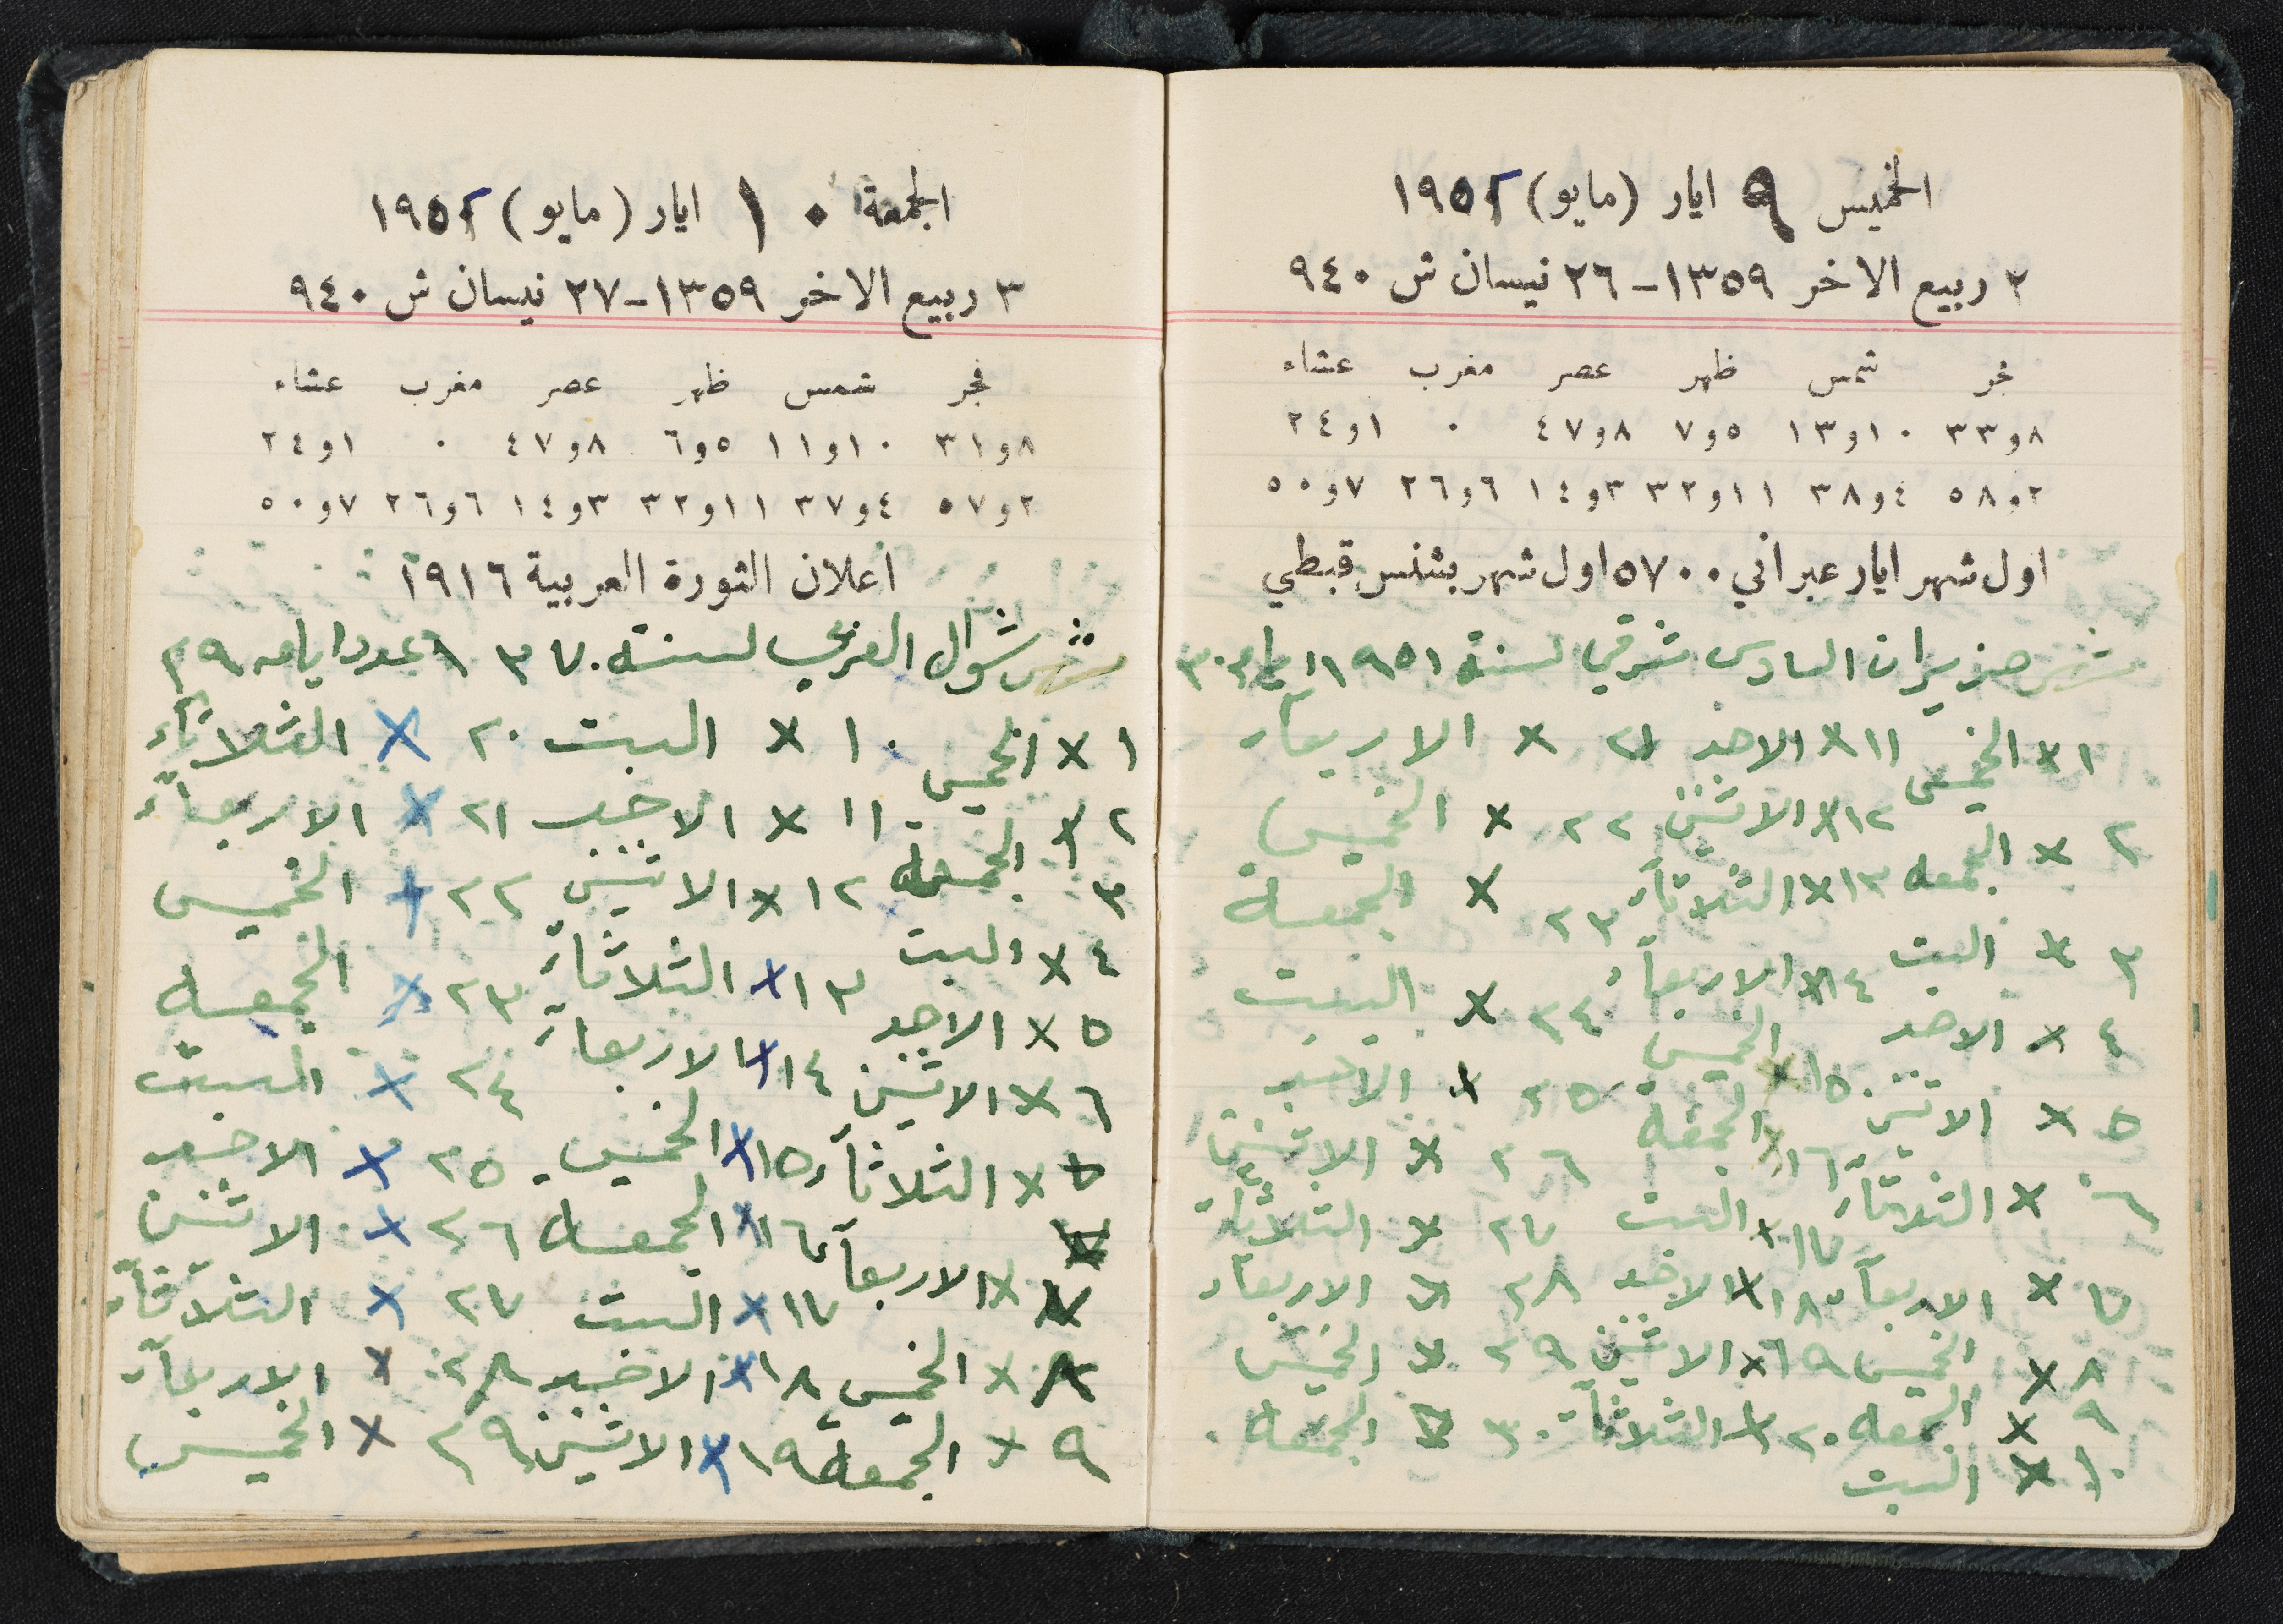 الخميس ٩ ايار (مايو) ١٩٥٢
٢ ربيع الاخر ١٣٥٩-٢٦ نيسان ش ٩٤٠
فجر شمس ظهر عصر مغرب عشاء
٨و٣٣ ١٠و١٣ ٥و٧ ٨و٤٧ ٠ ١و٢٤
٢و٥٨ ٤و٣٨ ١١و٣٢ ٣و١٤ ٦و٢٦ ٧و٥٠
اول شهر ايار عبراني ٥٧٠٠ اول شهر بشنس قبطي
شهر حزيران السادس شرقي لسنة ١٩٥١ ٣٠
١ x الخميس ١١ x الاحد ٢١ x الاربعاء
٢ x الجمعه ١٢ x الاثنين ٢٢ x الخميس
٣ x السبت ١٣ x الثلاثاء ٢٣ x الجمعة
٤ x الاحد ١٤ x الاربعاء ٢٤ x السبت
٥ x الاثنين ١٥ x الخميس ٢٥ x الاحد
٦ x الثلاثاء ١٦ x الجمعة ٢٦ x الاثنين
٧ x الاربعاء ١٧ x السبت ٢٧ x الثلاثاء
٨ x الخميس ١٨ x الاحد ٢٨ x الاربعاء
٩ x الجمعه ١٩ x الاثنين ٢٩ x الخميس
١٠ x السبت ٢٠ x الثلاثاء ٣٠ x الجمعه
الجمعة ١٠ ايار (مايو) ١٩٥٢
٣ ربيع الاخر ١٣٥٩-٢٧ نيسان ش ٩٤٠
فجر شمس ظهر عصر مغرب عشاء
٨و٣١ ١٠و١١ ٥و٦ ٨و٤٧ ٠ ١و٢٤
٢و٥٧ ٤و٣٧ ١١و٣٢ ٣و١٤ ٦و٢٦ ٧و٥٠
اعلان الثورة العربية ١٩١٦
شهر شوال العربي لسنة ١٣٧٠ عدد ايامه ٢٩
١ x الخميس ١٠ x السبت ٢٠ x الثلاثاء
٢ x الجمعة ١١ x الاحد ٢١ x الاربعاء
٣ السبت ١٢ x الاثنين ٢٢ x الخميس
٤ x الاحد ١٣ x الثلاثاء ٢٣ x الجمعه
٥ x الاثنين ١٤ x الاربعاء ٢٤ x السبت
٦ x الثلاثاء ١٥ x الخميس ٢٥ x الاحد
٧ x الاربعاء ١٦ x الجمعه ٢٦ x الاثنين
٨ x الخميس ١٧ x السبت ٢٧ x الثلاثاء
٩ x الجمعة ١٨ x الاحد ٢٨ x الاربعاء
١٩ x الاثنين ٢٩ x الخميس